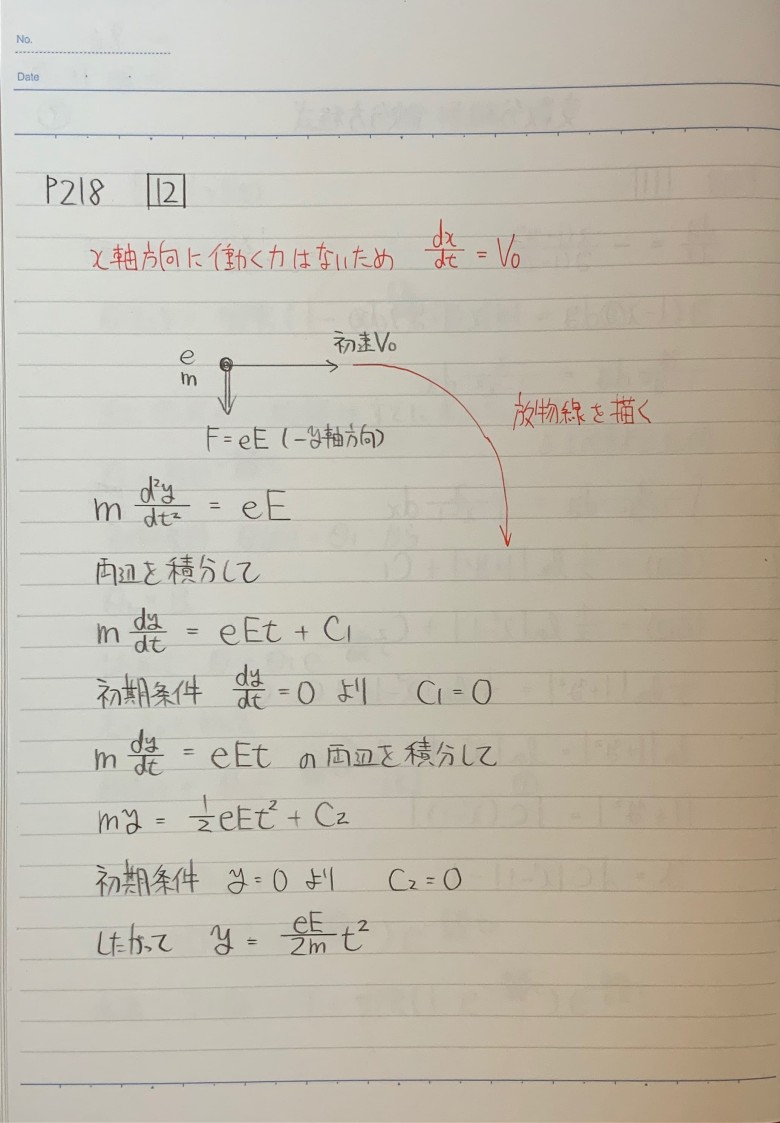 No.
Date
P218 12
x軸方向に働く力はないため dx/dt = V₀
初速V₀
e
m
放物線を描く
F=eE (-y軸方向)
m d²y/dt² = eE
両辺を積分して
m dy/dt = eEt + C₁
初期条件 dy/dt = 0 より C₁=0
m dy/dt = eEt の両辺を積分して
my = 1/2 eEt² + C₂
初期条件 y=0 より C₂=0
したがって y = eE/2m t²